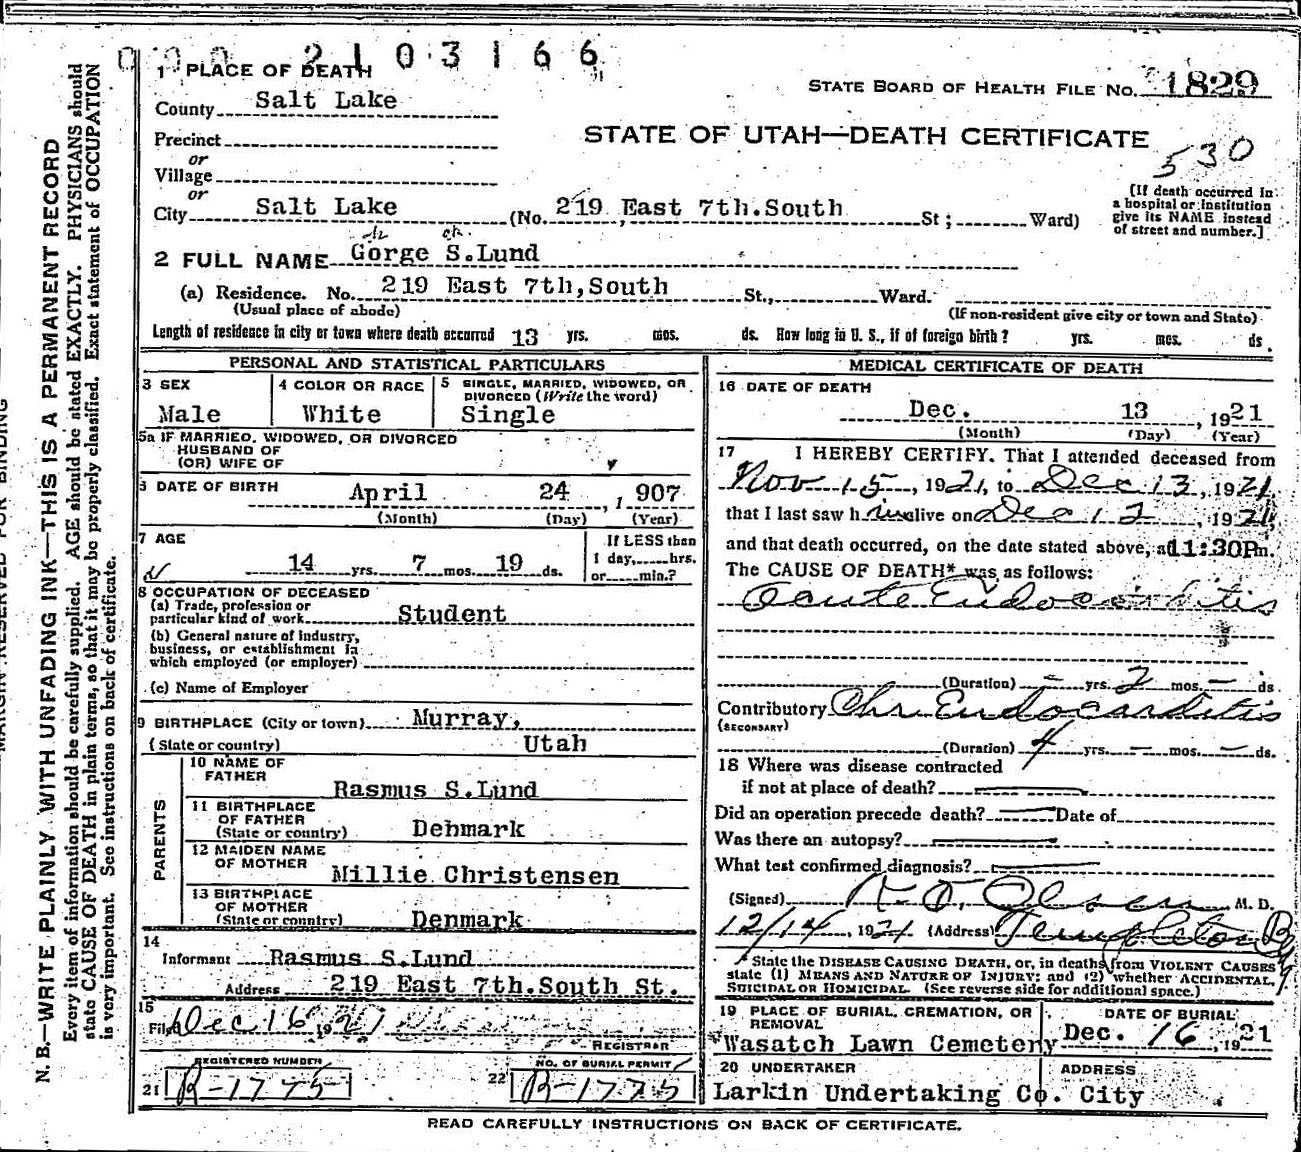 2103166
1 PLACE OF DEATH
STATE BOARD OF HEALTH FILE No. 1829
County Salt Lake
STATE OF UTAH—DEATH CERTIFICATE
530
Precinct
or
Village
or
City Salt Lake (No. 219 East 7th.South St; Ward)
(If death occurred in
a hospital or institution
give its NAME instead
of street and number.]
2 FULL NAME Gorge S.Lund
(a) Residence. No. 219 East 7th,South St., Ward.
(Usual place of abode)
(If non-resident give city or town and State)
Length of residence in city or town where death occurred 13 yrs. mos. ds. How long in U. S., if of foreign birth? yrs. mos. ds.
PERSONAL AND STATISTICAL PARTICULARS
3 SEX
Male
4 COLOR OR RACE
White
5 SINGLE, MARRIED, WIDOWED, OR
DIVORCED (Write the word)
Single
5a IF MARRIED, WIDOWED, OR DIVORCED
HUSBAND OF
(OR) WIFE OF
DATE OF BIRTH April 24, 1907
(Month) (Day) (Year)
7 AGE
14 yrs. 7 mos. 19 ds.
If LESS than
1 day,......hrs.
or......min.?
8 OCCUPATION OF DECEASED
(a) Trade, profession or
particular kind of work Student
(b) General nature of industry,
business, or establishment in
which employed (or employer)
(c) Name of Employer
9 BIRTHPLACE (City or town) Murray,
(State or country) Utah
PARENTS
10 NAME OF
FATHER
Rasmus S.Lund
11 BIRTHPLACE
OF FATHER
(State or country) Denmark
12 MAIDEN NAME
OF MOTHER
Millie Christensen
13 BIRTHPLACE
OF MOTHER
(State or country) Denmark
14
Informant Rasmus S.Lund
Address 219 East 7th.South St.
15
Filed Dec 16, 1921
REGISTRAR
REGISTERED NUMBER
21 B-1775
NO. OF BURIAL PERMIT
22 B-1775
MEDICAL CERTIFICATE OF DEATH
16 DATE OF DEATH
Dec. 13, 1921
(Month) (Day) (Year)
17 I HEREBY CERTIFY. That I attended deceased from
Nov 15, 1921, to Dec 13, 1921,
that I last saw him alive on Dec 12, 1921,
and that death occurred, on the date stated above, at 11:30Pm.
The CAUSE OF DEATH* was as follows:
Acute Endocarditis
(Duration) — yrs. 2 mos. — ds.
Contributory Chr Endocarditis
(SECONDARY)
(Duration) 4 yrs. — mos. — ds.
18 Where was disease contracted
if not at place of death?
Did an operation precede death? Date of
Was there an autopsy?
What test confirmed diagnosis?
(Signed) Olsen M. D.
12/14, 1921 (Address) Templeton Bldg
* State the DISEASE CAUSING DEATH, or, in deaths from VIOLENT CAUSES
state (1) MEANS AND NATURE OF INJURY; and (2) whether ACCIDENTAL,
SUICIDAL OR HOMICIDAL. (See reverse side for additional space.)
19 PLACE OF BURIAL, CREMATION, OR
REMOVAL
Wasatch Lawn Cemetery
DATE OF BURIAL
Dec. 16, 1921
20 UNDERTAKER
Larkin Undertaking Co.
ADDRESS
City
READ CAREFULLY INSTRUCTIONS ON BACK OF CERTIFICATE.
MARGIN RESERVED FOR BINDING
N. B.—WRITE PLAINLY WITH UNFADING INK—THIS IS A PERMANENT RECORD
Every item of information should be carefully supplied. AGE should be stated EXACTLY. PHYSICIANS should
state CAUSE OF DEATH in plain terms, so that it may be properly classified. Exact statement of OCCUPATION
is very important. See instructions on back of certificate.